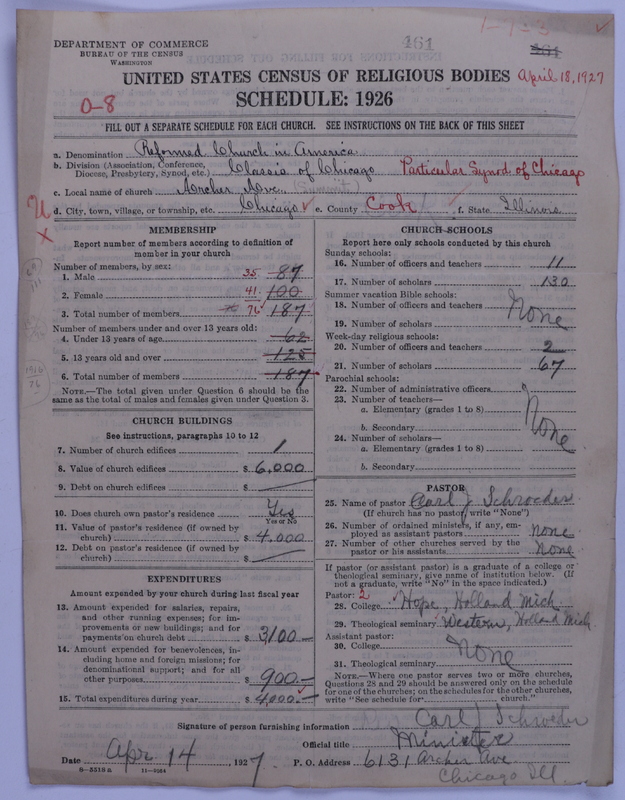 1-7-3
461
DEPARTMENT OF COMMERCE
BUREAU OF THE CENSUS
WASHINGTON
UNITED STATES CENSUS OF RELIGIOUS BODIES April 18, 1927
SCHEDULE: 1926
0-8
FILL OUT A SEPARATE SCHEDULE FOR EACH CHURCH. SEE INSTRUCTIONS ON THE BACK OF THIS SHEET
a. Denomination Reformed Church in America
b. Division (Association, Conference, Diocese, Presbytery, Synod, etc.) Classis of Chicago Particular Synod of Chicago
c. Local name of church Archer Ave. (Summit)
d. City, town, village, or township, etc. Chicago e. County Cook f. State Illinois
MEMBERSHIP
Report number of members according to definition of
member in your church
Number of members, by sex:
1. Male 35 87
2. Female 41 100
3. Total number of members 76 187
Number of members under and over 13 years old:
4. Under 13 years of age 62
5. 13 years old and over 125
6. Total number of members 187
NOTE.—The total given under Question 6 should be the
same as the total of males and females given under Question 3.
CHURCH BUILDINGS
See instructions, paragraphs 10 to 12
7. Number of church edifices 1
8. Value of church edifices $ 6,000
9. Debt on church edifices $
10. Does church own pastor's residence Yes
Yes or No
11. Value of pastor's residence (if owned by
church) $ 4,000
12. Debt on pastor's residence (if owned by
church) $
EXPENDITURES
Amount expended by your church during last fiscal year
13. Amount expended for salaries, repairs,
and other running expenses; for im-
provements or new buildings; and for
payments on church debt $ 3100
14. Amount expended for benevolences, in-
cluding home and foreign missions; for
denominational support; and for all
other purposes $ 900
15. Total expenditures during year $ 4,000
CHURCH SCHOOLS
Report here only schools conducted by this church
Sunday schools:
16. Number of officers and teachers 11
17. Number of scholars 130
Summer vacation Bible schools:
18. Number of officers and teachers None
19. Number of scholars
Week-day religious schools:
20. Number of officers and teachers 2
21. Number of scholars 67
Parochial schools:
22. Number of administrative officers
23. Number of teachers—
a. Elementary (grades 1 to 8)
b. Secondary None
24. Number of scholars—
a. Elementary (grades 1 to 8)
b. Secondary
PASTOR
25. Name of pastor Carl J Schroeder
(If church has no pastor, write "None")
26. Number of ordained ministers, if any, em-
ployed as assistant pastors none
27. Number of other churches served by the
pastor or his assistants None
If pastor (or assistant pastor) is a graduate of a college or
theological seminary, give name of institution below. (If
not a graduate, write "No" in the space indicated.)
Pastor: 2
28. College Hope, Holland Mich
29. Theological seminary Western, Holland Mich.
Assistant pastor:
30. College None
31. Theological seminary
NOTE.—Where one pastor serves two or more churches,
Questions 28 and 29 should be answered only on the schedule
for one of the churches; on the schedules for the other churches,
write "See schedule for church."
Signature of person furnishing information Carl J Schroeder
Official title Minister
Date Apr 14, 1927 P. O. Address 6131 Archer Ave
Chicago Ill.
8-5518a 11-9064